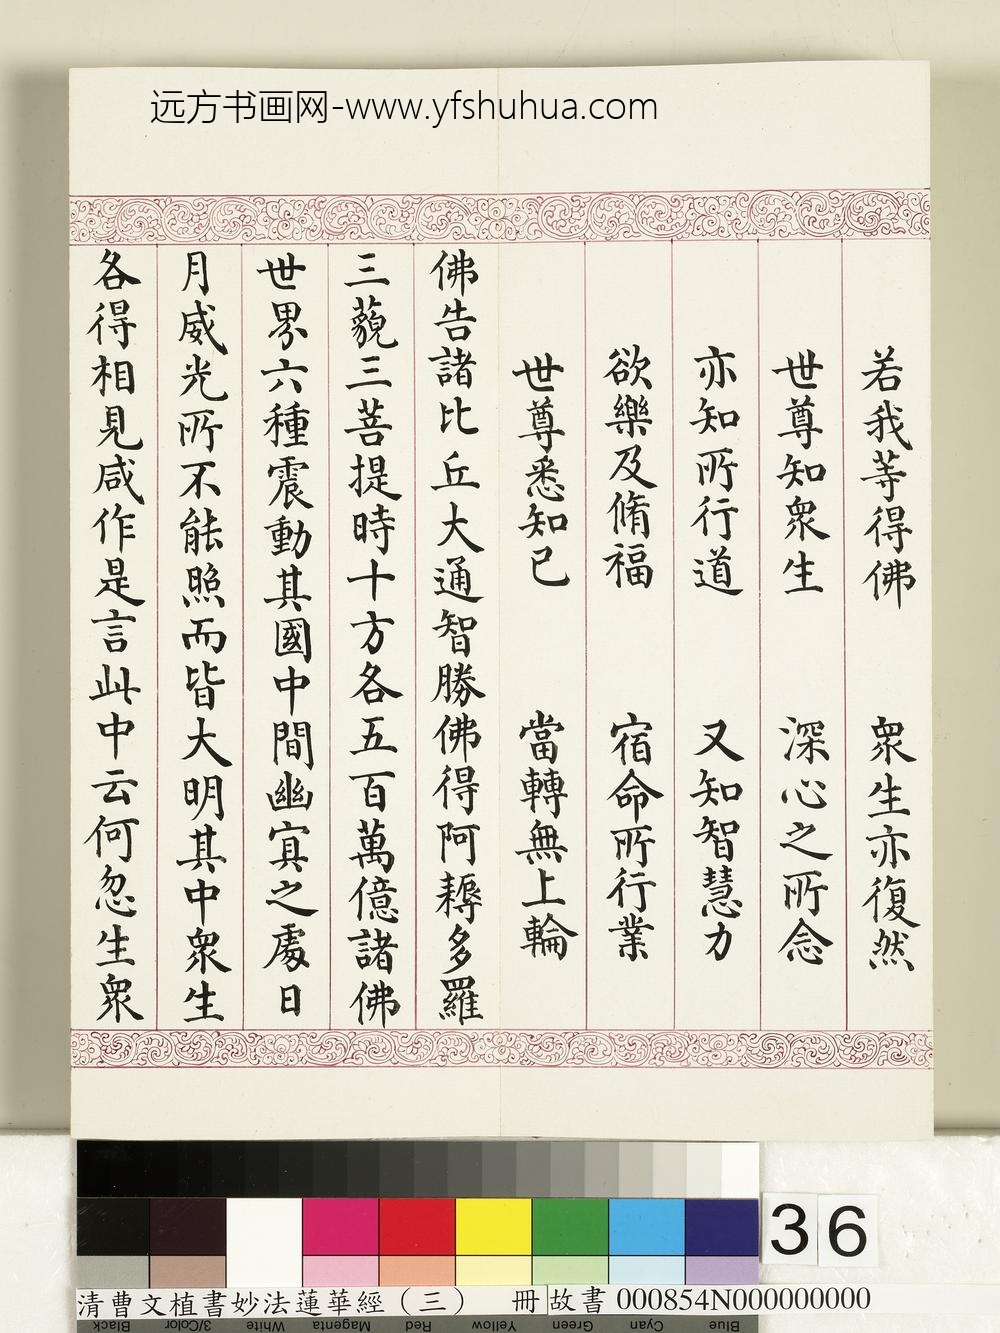 远方书画网-www.yfshuhua.com
若我等得佛　衆生亦復然
世尊知衆生　深心之所念
亦知所行道　又知智慧力
欲樂及脩福　宿命所行業
世尊悉知已　當轉無上輪
佛告諸比丘大通智勝佛得阿耨多羅
三藐三菩提時十方各五百萬億諸佛
世界六種震動其國中間幽冥之處日
月威光所不能照而皆大明其中衆生
各得相見咸作是言此中云何忽生衆
36
清曹文植書妙法蓮華經（三）　冊 故書 000854N000000000
Black 3/Color White Magenta Red Yellow Green Cyan Blue